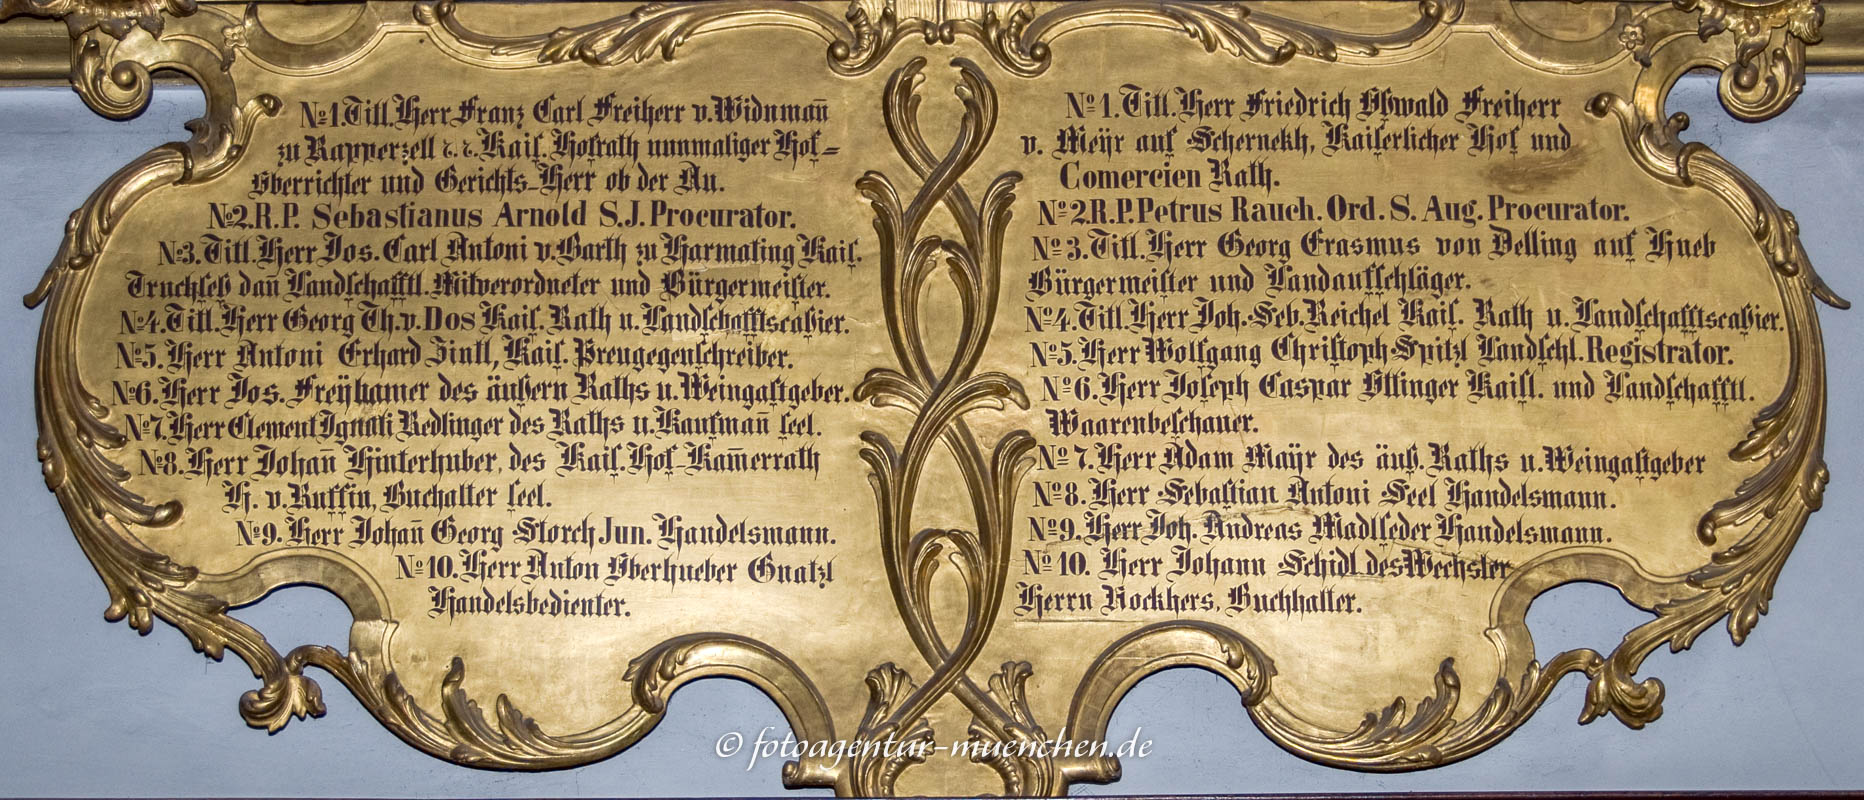 №1. Titl. Herr Franz Carl Freiherr v. Widnmañ
zu Rapperzell r. r. Kais. Hofrath nunmaliger Hof=
Oberrichter und Gerichts-Herr ob der Au.
№2. R. P. Sebastianus Arnold S. J. Procurator.
№3. Titl. Herr Jos. Carl Antoni v. Barth zu Harmating Kais.
Truchseß dañ Landschafftl. Mitverordneter und Bürgermeister.
№4. Titl. Herr Georg Th. v. Dos Kais. Rath u. Landschafftscaßier.
№5. Herr Antoni Erhard Zintl, Kais. Preugegenschreiber.
№6. Herr Jos. Freÿhamer des äußern Raths u. Weingastgeber.
№7. Herr Clement Ignati Redlinger des Raths u. Kaufmañ seel.
№8. Herr Johañ Hinterhuber, des Kais. Hof-Kam̄errath
H. v. Ruffin, Buchalter seel.
№9. Herr Johañ Georg Storch Jun. Handelsmann.
№10. Herr Anton Oberhueber Gnatzl
Handelsbedienter.
№1. Titl. Herr Friedrich Oswald Freiherr
v. Meÿr auf Schernekh, Kaiserlicher Hof und
Comercien Rath.
№2. R. P. Petrus Rauch. Ord. S. Aug. Procurator.
№3. Titl. Herr Georg Erasmus von Delling auf Hueb
Bürgermeister und Landaufschläger.
№4. Titl. Herr Joh. Seb. Reichel Kais. Rath u. Landschafftscaßier.
№5. Herr Wolfgang Christoph Spitzl Landschl. Registrator.
№6. Herr Joseph Caspar Ottinger Kaisl. und Landschafftl.
Waarenbeschauer.
№7. Herr Adam Maÿr des äuß. Raths u. Weingastgeber
№8. Herr Sebastian Antoni Seel Handelsmann.
№9. Herr Joh. Andreas Madlseder Handelsmann.
№10. Herr Johann Schidl des Wechsler
Herrn Nockhers, Buchhalter.
© fotoagentur-muenchen.de